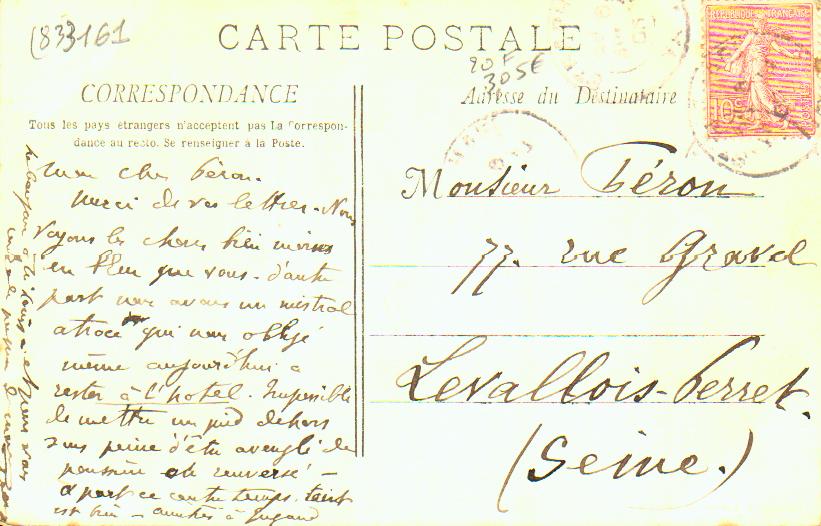 (833161
CARTE POSTALE
20F
30SE
CORRESPONDANCE
Tous les pays étrangers n'acceptent pas La Correspon-
dance au recto. Se renseigner à la Poste.
Adresse du Destinataire
REPUBLIQUE FRANÇAISE
10
Mon cher Féron.
Merci de vos lettres. Nous
voyons les choses bien moins
en bleu que vous. d'autre
part nous avons un mistral
atroce qui nous oblige
même aujourd'hui à
rester à l'hotel. Impossible
de mettre un pied dehors
sans peine d'être aveuglé de
poussière et renversé —
à part ce contre temps. tout
est bien — amitiés à
Monsieur Féron
77. rue Gravel
Levallois-Perret.
(Seine.)